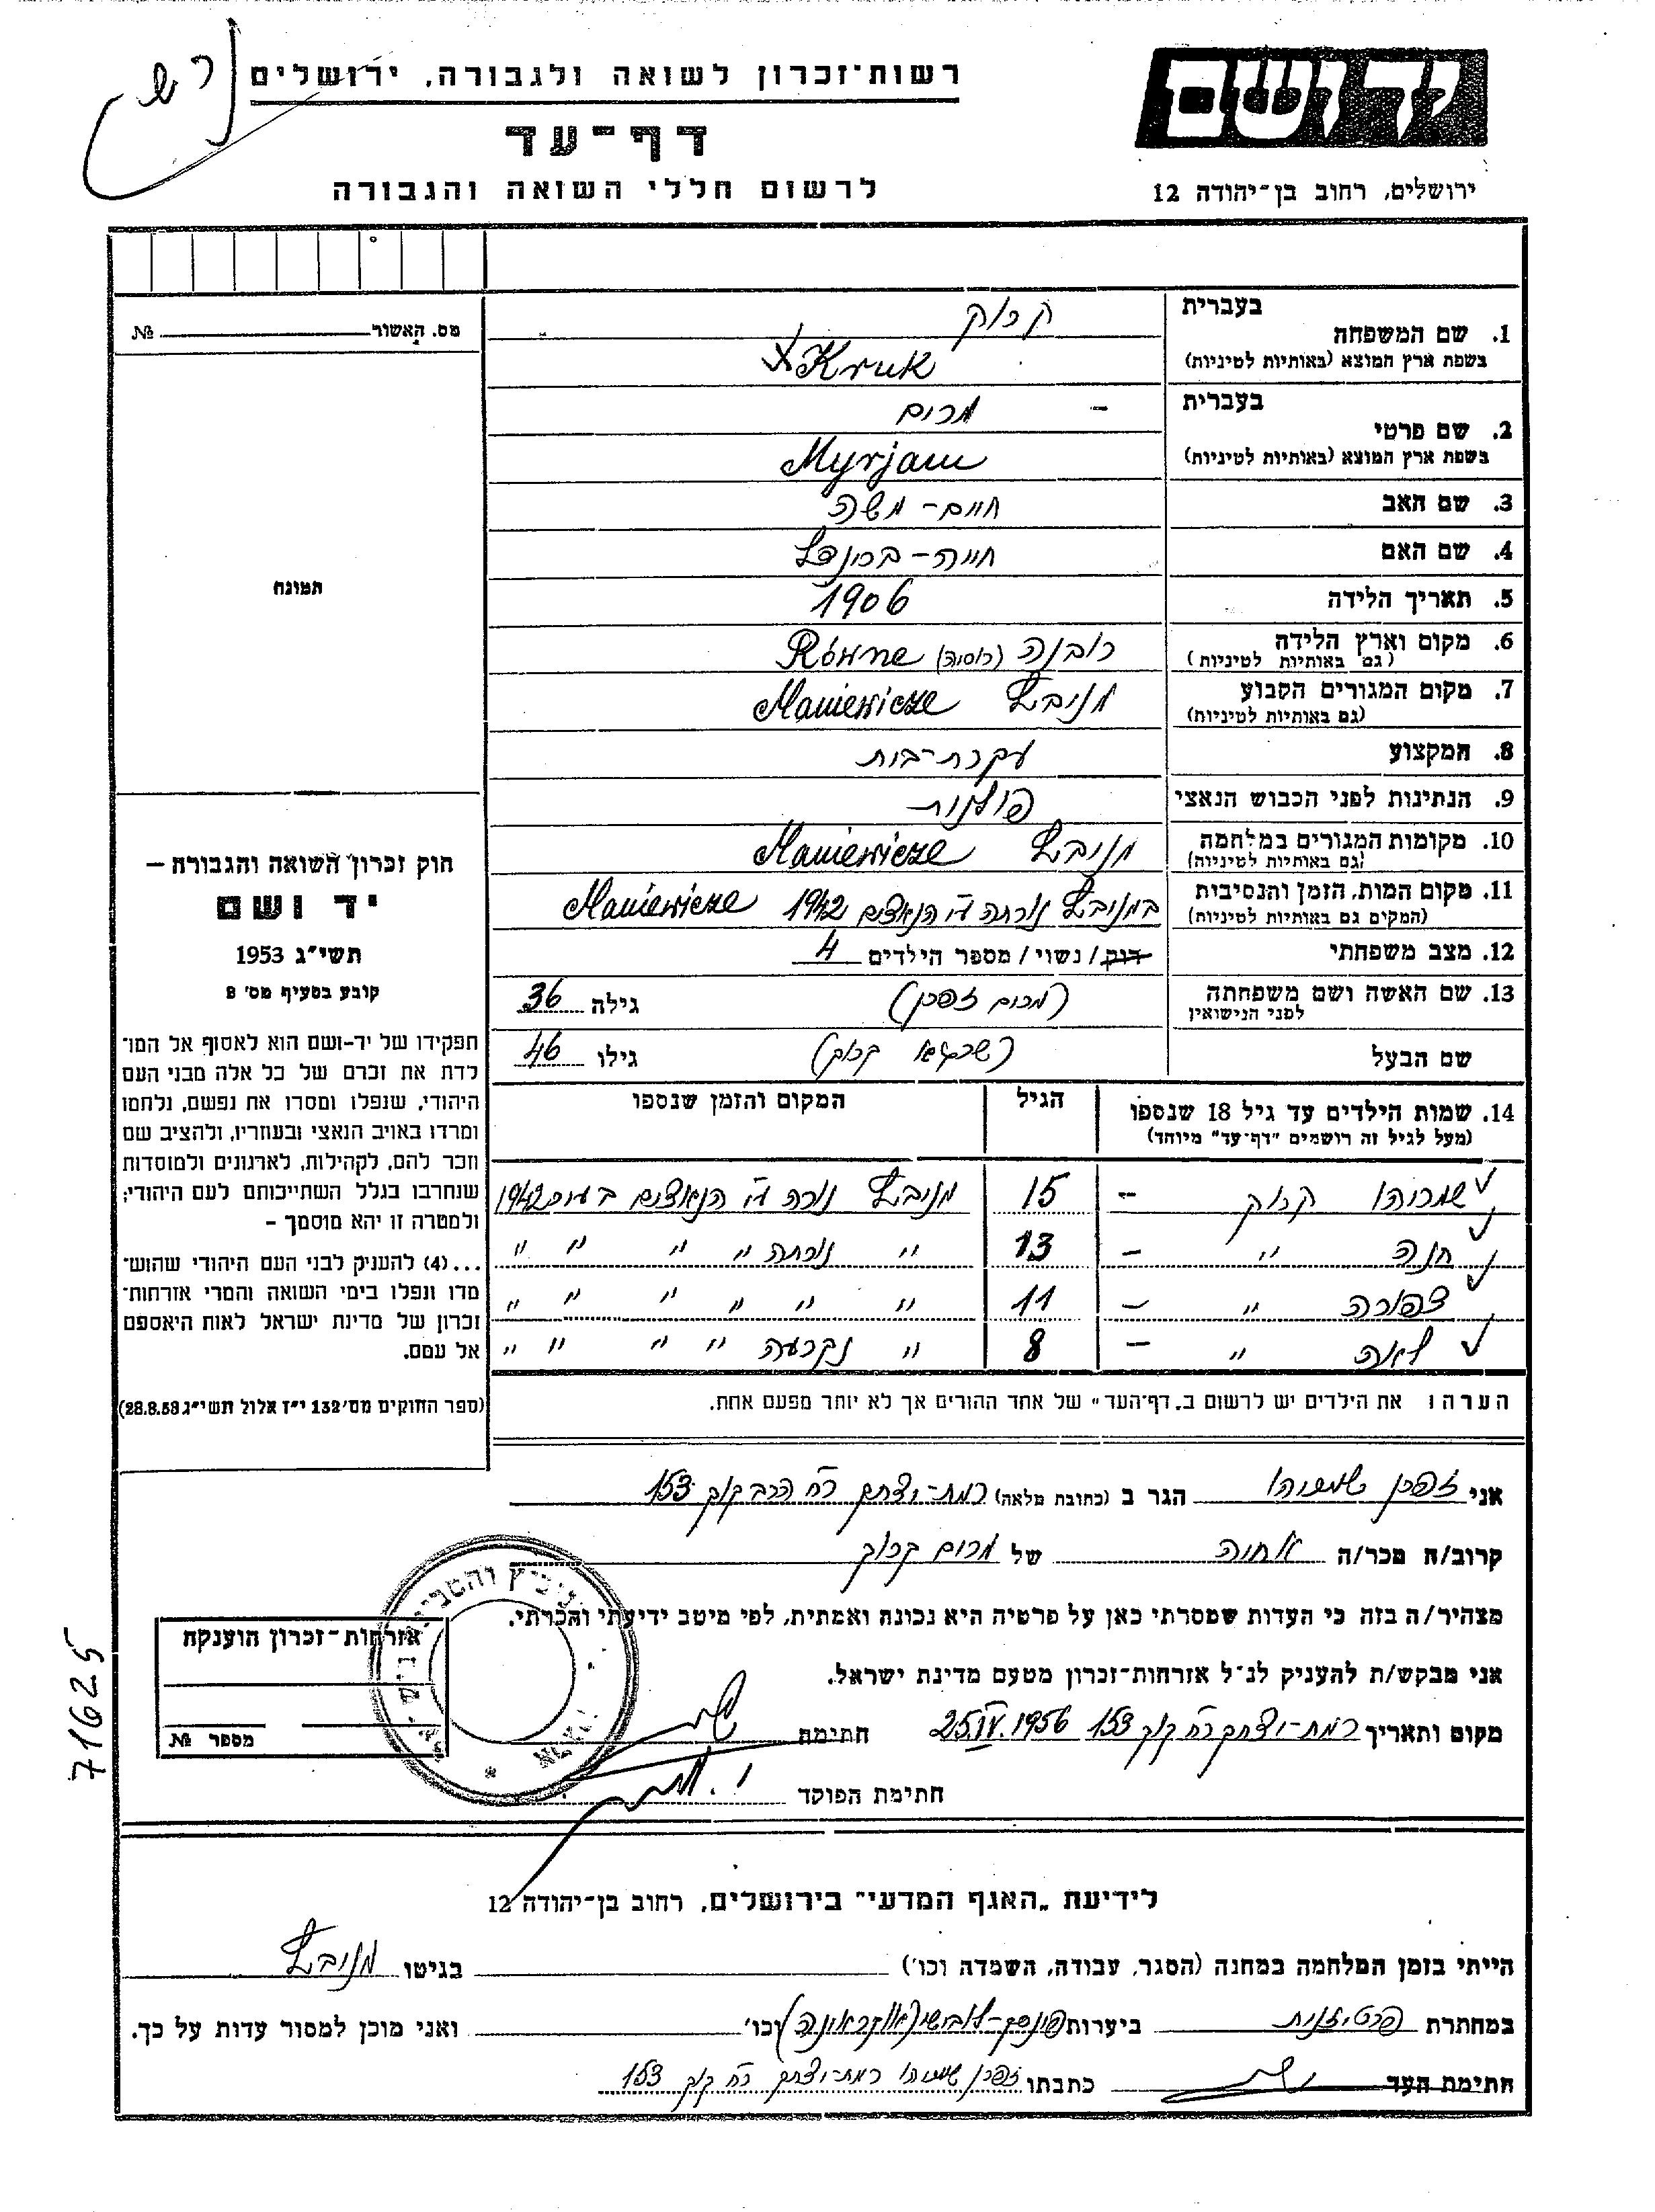 רשות־זכרון לשואה ולגבורה, ירושלים
ידושם
דף־עד
לרשום חללי השואה והגבורה
ירושלים, רחוב בן־יהודה 12
בעברית
1. שם המשפחה
בשפת ארץ המוצא (באותיות לטיניות)
קרוק
Kruk
מס. האשור № 
בעברית
2. שם פרטי
בשפת ארץ המוצא (באותיות לטיניות)
מרים
Myrjam
3. שם האב חיים- משה
4. שם האם
5. תאריך הלידה 1906
6. מקום וארץ הלידה רובנה (רוסיה) Równe
(גם באותיות לטיניות)
7. מקום המגורים הקבוע Maniewicze
(גם באותיות לטיניות)
8. המקצוע עקרת-בית
9. הנתינות לפני הכבוש הנאצי פולנית
10. מקומות המגורים במלחמה Maniewicze
(גם באותיות לטיניות)
11. מקום המות, הזמן והנסיבות נורתה ע"י הנאצים 1942 Maniewicze
(המקום גם באותיות לטיניות)
12. מצב משפחתי רווק / נשוי / מספר הילדים 4
13. שם האשה ושם משפחתה (מרים זפרן) גילה 36
לפני הנישואין
שם הבעל קרוק) גילו 46
תמונה
חוק זכרון השואה והגבורה —
יד ושם
תשי"ג 1953
קובע בסעיף מס' 8
תפקידו של יד-ושם הוא לאסוף אל המו־
לדת את זכרם של כל אלה מבני העם
היהודי, שנפלו ומסרו את נפשם, נלחמו
ומרדו באויב הנאצי ובעוזריו, ולהציב שם
וזכר להם, לקהילות, לארגונים ולמוסדות
שנחרבו בגלל השתייכותם לעם היהודי;
ולמטרה זו יהא מוסמך -
...(4) להעניק לבני העם היהודי שהוש־
מדו ונפלו בימי השואה והמרי אזרחות־
זכרון של מדינת ישראל לאות היאספם
אל עמם.
(ספר החוקים מס' 132 י"ז אלול תשי"ג 28.8.53)
14. שמות הילדים עד גיל 18 שנספו הגיל המקום והזמן שנספו
(מעל לגיל זה רושמים "דף-עד" מיוחד)
שמריהו קרוק - 15 נורה ע"י הנאצים 1942
חנה " - 13 " נורתה " " " "
צפורה " - 11 " " " " " "
לאה " - 8 " נקברה " " " " " "
הערה: את הילדים יש לרשום ב"דף־העד" של אחד ההורים אך לא יותר מפעם אחת.
אני זפרן שמעיהו הגר ב (כתובת מלאה) רמת-יצחק רח' הרב קוק 153
קרוב/ה מכר/ה אחיה של מרים קרוק
מצהיר/ה בזה כי העדות שמסרתי כאן על פרטיה היא נכונה ואמתית, לפי מיטב ידיעתי והכרתי.
אני מבקש/ת להעניק לנ"ל אזרחות־זכרון מטעם מדינת ישראל.
מקום ותאריך רמת-יצחק רח' קוק 153 25.IV.1956 חתימת
חתימת הפוקד
אזרחות־זכרון הוענקה
מספר №
71625
לידיעת „האגף המדעי" בירושלים, רחוב בן־יהודה 12
הייתי בזמן המלחמה במחנה (הסגר, עבודה, השמדה וכו') בגיטו
במחתרת פרטיזנית ביערות (אוקראינה) וכו' ואני מוכן למסור עדות על כך.
חתימת העד כתבתו זפרן שמעיהו רמת-יצחק רח' קוק 153